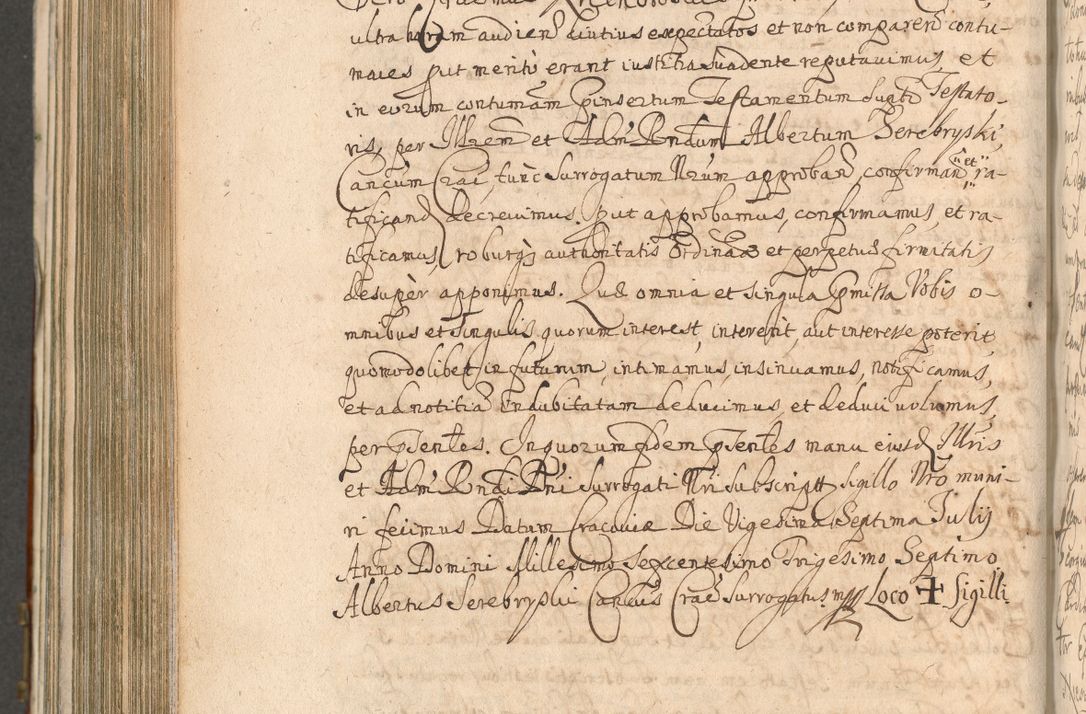 ultra horam audien diutius expectatos et non comparen contu-
maces put merito erant iustitia suadente reputavimus, et
in eorum contumam pinsertum Testamentum supti Testato-
ris, per Illrem et Admi Rndum Albertum Serebryski,
Cancum Crac, tunc surrogatum Nrum approban, confirman et ra-
tificand decrevimus. put approbamus, confirmamus, et ra-
tificamus, roburq3 authoritatis Ordinae et perpetue firmitatis
desuper apponimus. Quae omnia et singula pmissa Vobis o-
mnibus et singulis, quorum interest, intererit, aut interesse poterit
quomodolibet in futurum, intimamus, insinuamus, notificamus,
et ad notitia indubitatam deducimus, et deduci volumus,
per psentes. In quorum fidem psentes manu eiusd Illris
et Admi Rndi Dni Surrogati Nri subscript sigillo Nro muni-
ri fecimus Datum Cracoviae Die Vigesima Septima Julij
Anno Domini Millesimo Sexcentesimo Trigesimo Septimo.
Albertus Serebryski Cancus Crae Surrogatus mpp Loco ✝ Sigilli